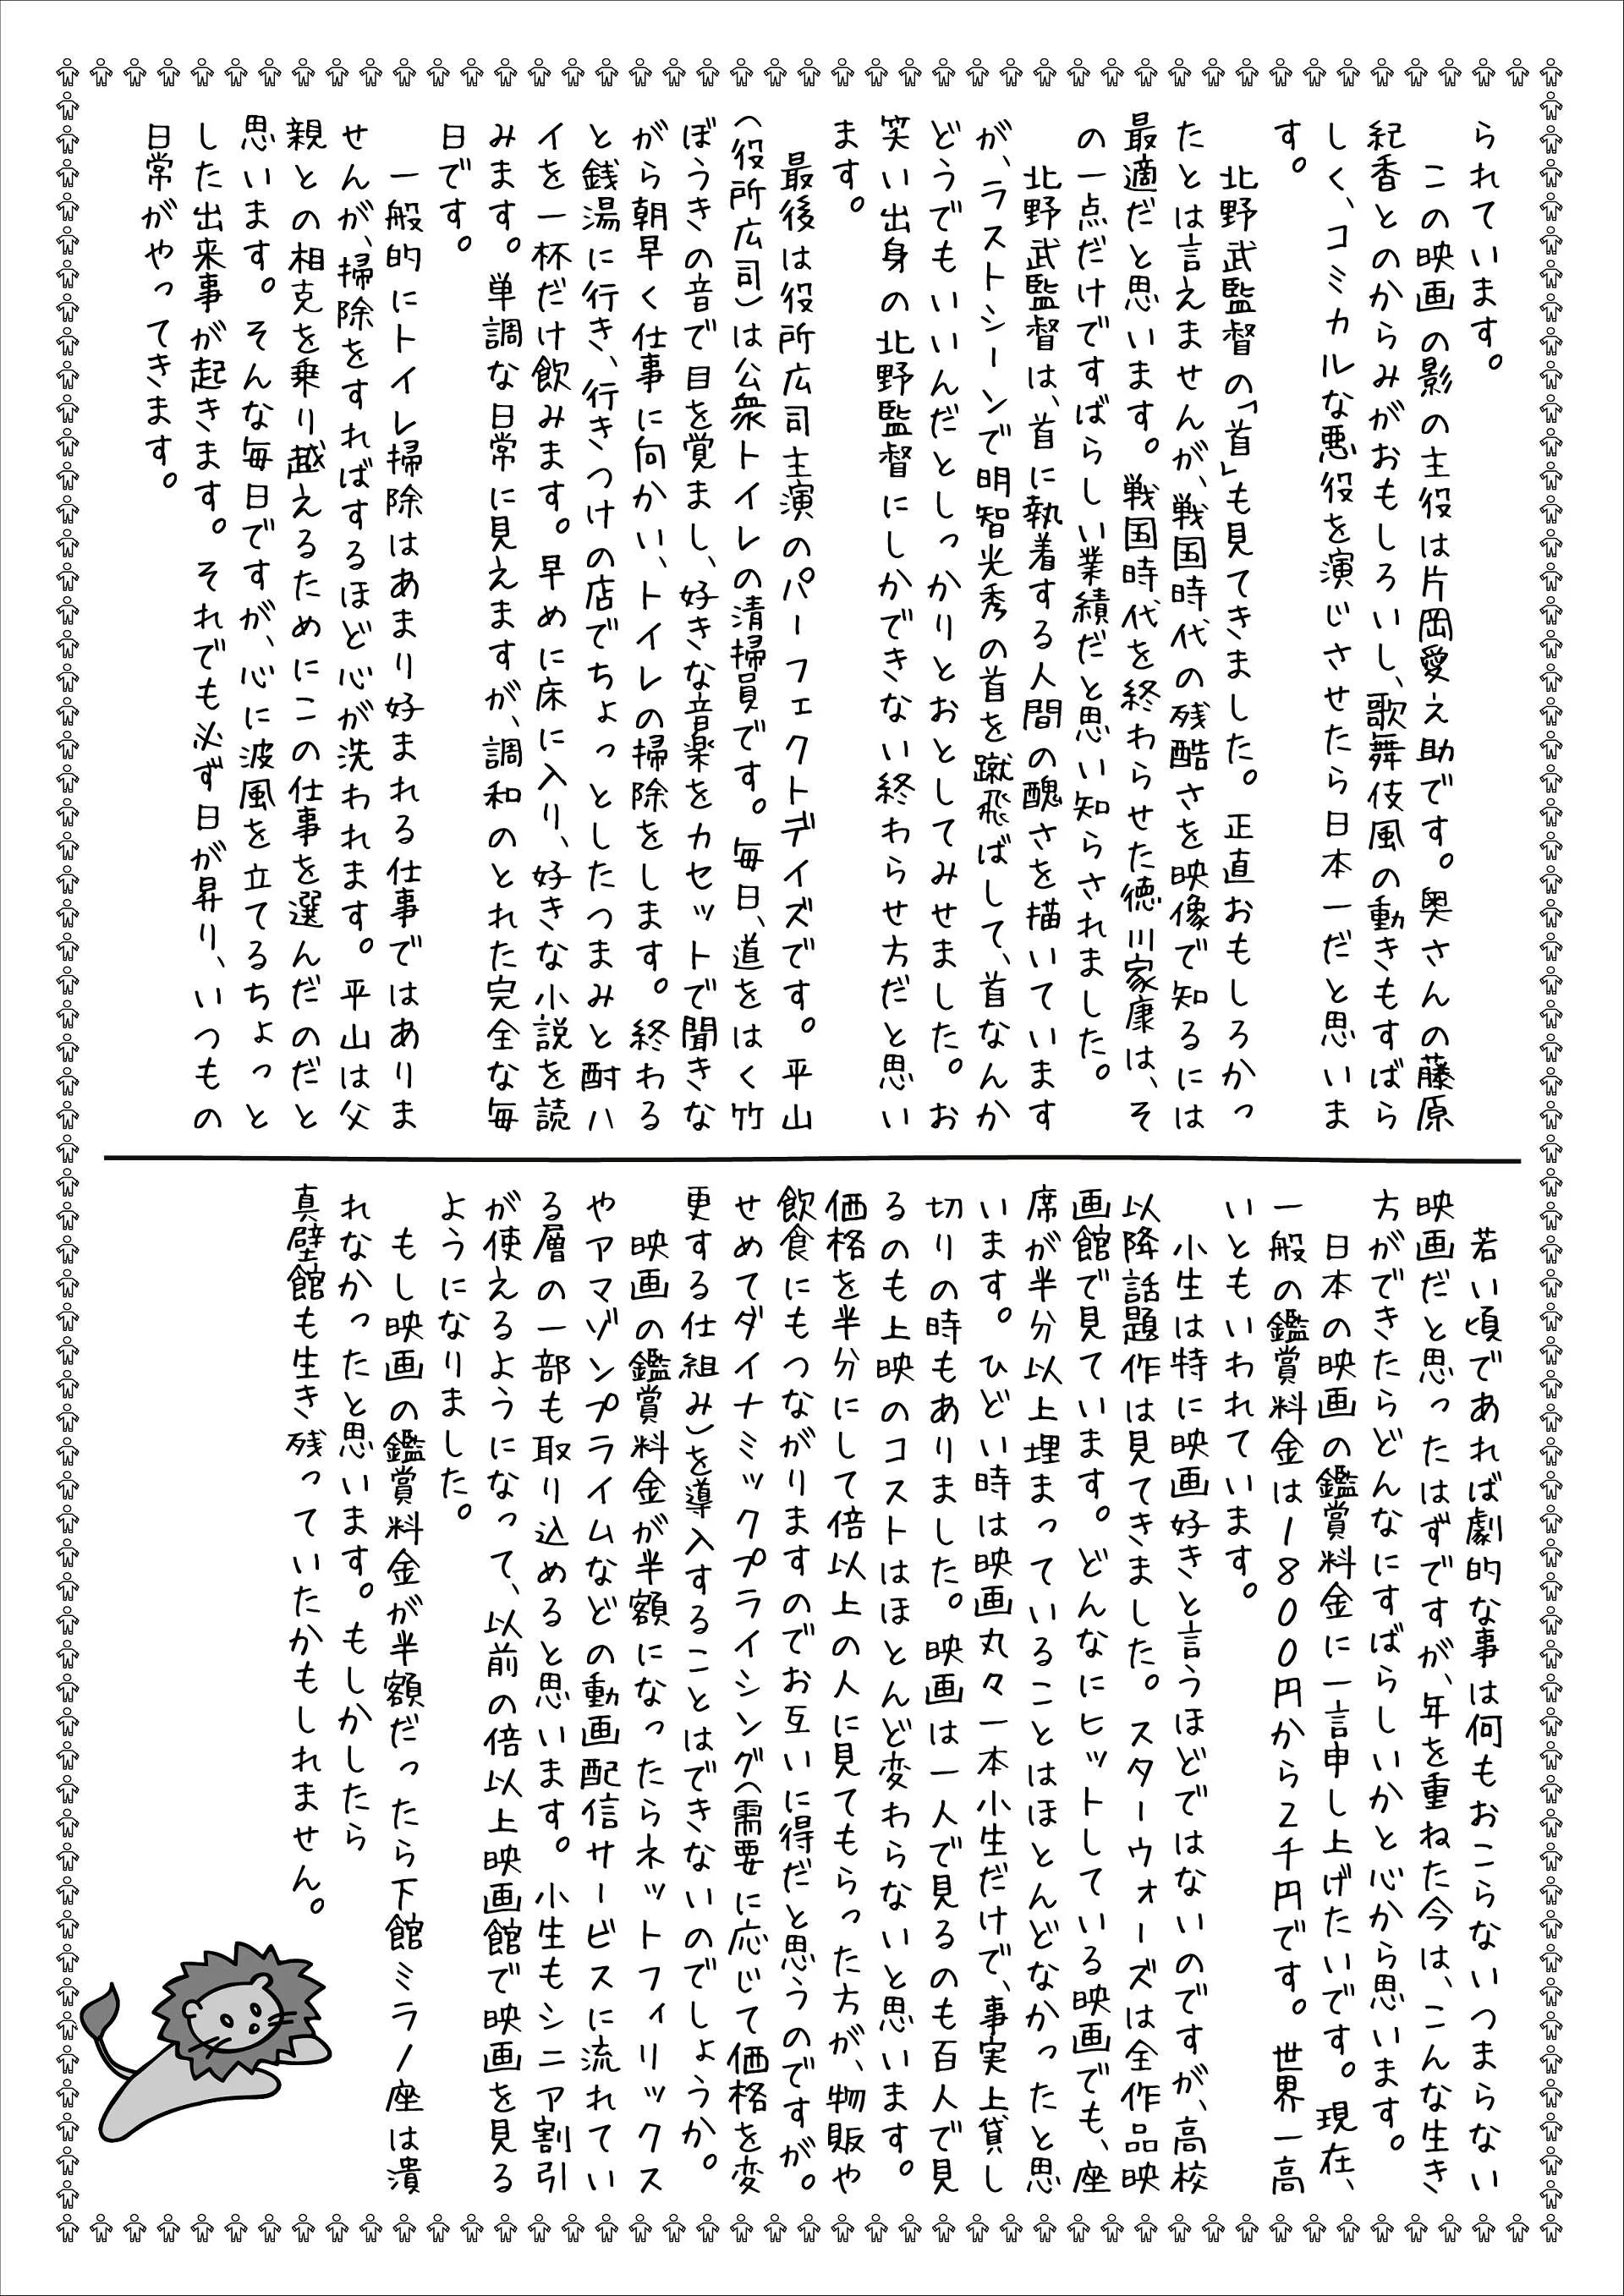 られています。
この映画の影の主役は片岡愛え助です。奥さんの藤原
紀香とのからみがおもしろいし、歌舞伎風の動きもすばら
しく、コミカルな悪役を演じさせたら日本一だと思いま
す。
北野武監督の「首」も見てきました。正直おもしろかっ
たとは言えませんが、戦国時代の残酷さを映像で知るには
最適だと思います。戦国時代を終わらせた徳川家康は、そ
の一点だけですばらしい業績だと思い知らされました。
北野武監督は、首に執着する人間の醜さを描いています
が、ラストシーンで明智光秀の首を蹴飛ばして、首なんか
どうでもいいんだとしっかりとおとしてみせました。お
笑い出身の北野監督にしかできない終わらせ方だと思い
ます。
最後は役所広司主演のパーフェクトデイズです。平山
（役所広司）は公衆トイレの清掃員です。毎日、道をはく竹
ぼうきの音で目を覚まし、好きな音楽をカセットで聞きな
がら朝早く仕事に向かい、トイレの掃除をします。終わる
と銭湯に行き、行きつけの店でちょっとしたつまみと酎ハ
イを一杯だけ飲みます。早めに床に入り、好きな小説を読
みます。単調な日常に見えますが、調和のとれた完全な毎
日です。
一般的にトイレ掃除はあまり好まれる仕事ではありま
せんが、掃除をすればするほど心が洗われます。平山は父
親との相克を乗り越えるためにこの仕事を選んだのだと
思います。そんな毎日ですが、心に波風を立てるちょっと
した出来事が起きます。それでも必ず日が昇り、いつもの
日常がやってきます。
若い頃であれば劇的な事は何もおこらないつまらない
映画だと思ったはずですが、年を重ねた今は、こんな生き
方ができたらどんなにすばらしいかと心から思います。
日本の映画の鑑賞料金に一言申し上げたいです。現在、
一般の鑑賞料金は1800円から2千円です。世界一高
いともいわれています。
小生は特に映画好きと言うほどではないのですが、高校
以降話題作は見てきました。スターウォーズは全作品映
画館で見ています。どんなにヒットしている映画でも、座
席が半分以上埋まっていることはほとんどなかったと思
います。ひどい時は映画丸々一本小生だけで、事実上貸し
切りの時もありました。映画は一人で見るのも百人で見
るのも上映のコストはほとんど変わらないと思います。
価格を半分にして倍以上の人に見てもらった方が、物販や
飲食にもつながりますのでお互いに得だと思うのですが。
せめてダイナミックプライシング（需要に応じて価格を変
更する仕組み）を導入することはできないのでしょうか。
映画の鑑賞料金が半額になったらネットフィリックス
やアマゾンプライムなどの動画配信サービスに流れてい
る層の一部も取り込めると思います。小生もシニア割引
が使えるようになって、以前の倍以上映画館で映画を見る
ようになりました。
もし映画の鑑賞料金が半額だったら下館ミラノ座は潰
れなかったと思います。もしかしたら
真壁館も生き残っていたかもしれません。